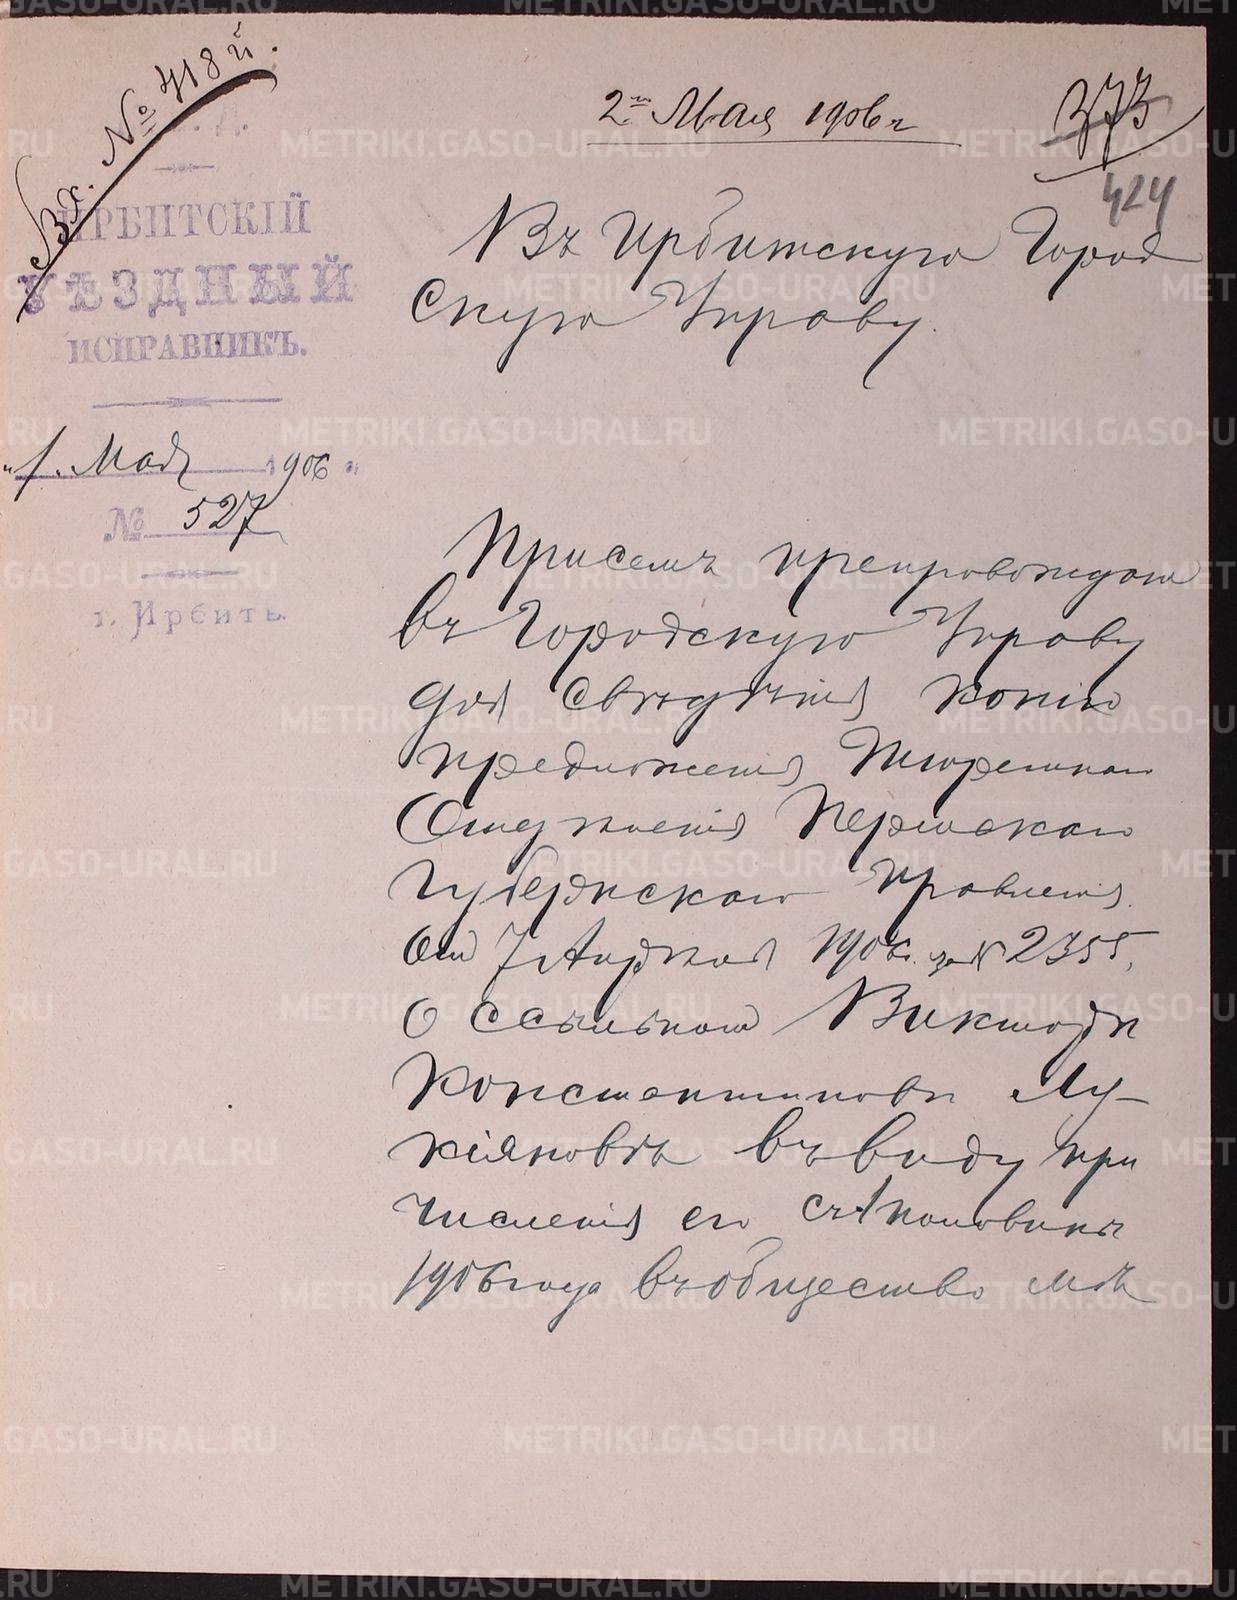 Вх. № 418 й.
2го Мая 1906 г
373
424
ИРБИТСКІЙ
УѢЗДНЫЙ
ИСПРАВНИКЪ.
"1" Мая 1906 г.
№ 527
г. Ирбить.
Въ Ирбитскую Город
скую Управу.
Присемъ препровождаю
въ Городскую Управу
для свѣдѣнія копію
предложенія Тюремнаго
Отдѣленія Пермскаго
Губернскаго Правленія
отъ 7 Апрѣля 1906 г. за № 2355,
о ссыльномъ Викторѣ
Константиновѣ Лу-
кіяновѣ въ виду при
численія его съ 1 половины
1906 года въ общество мѣ
METRIKI.GASO-URAL.RU